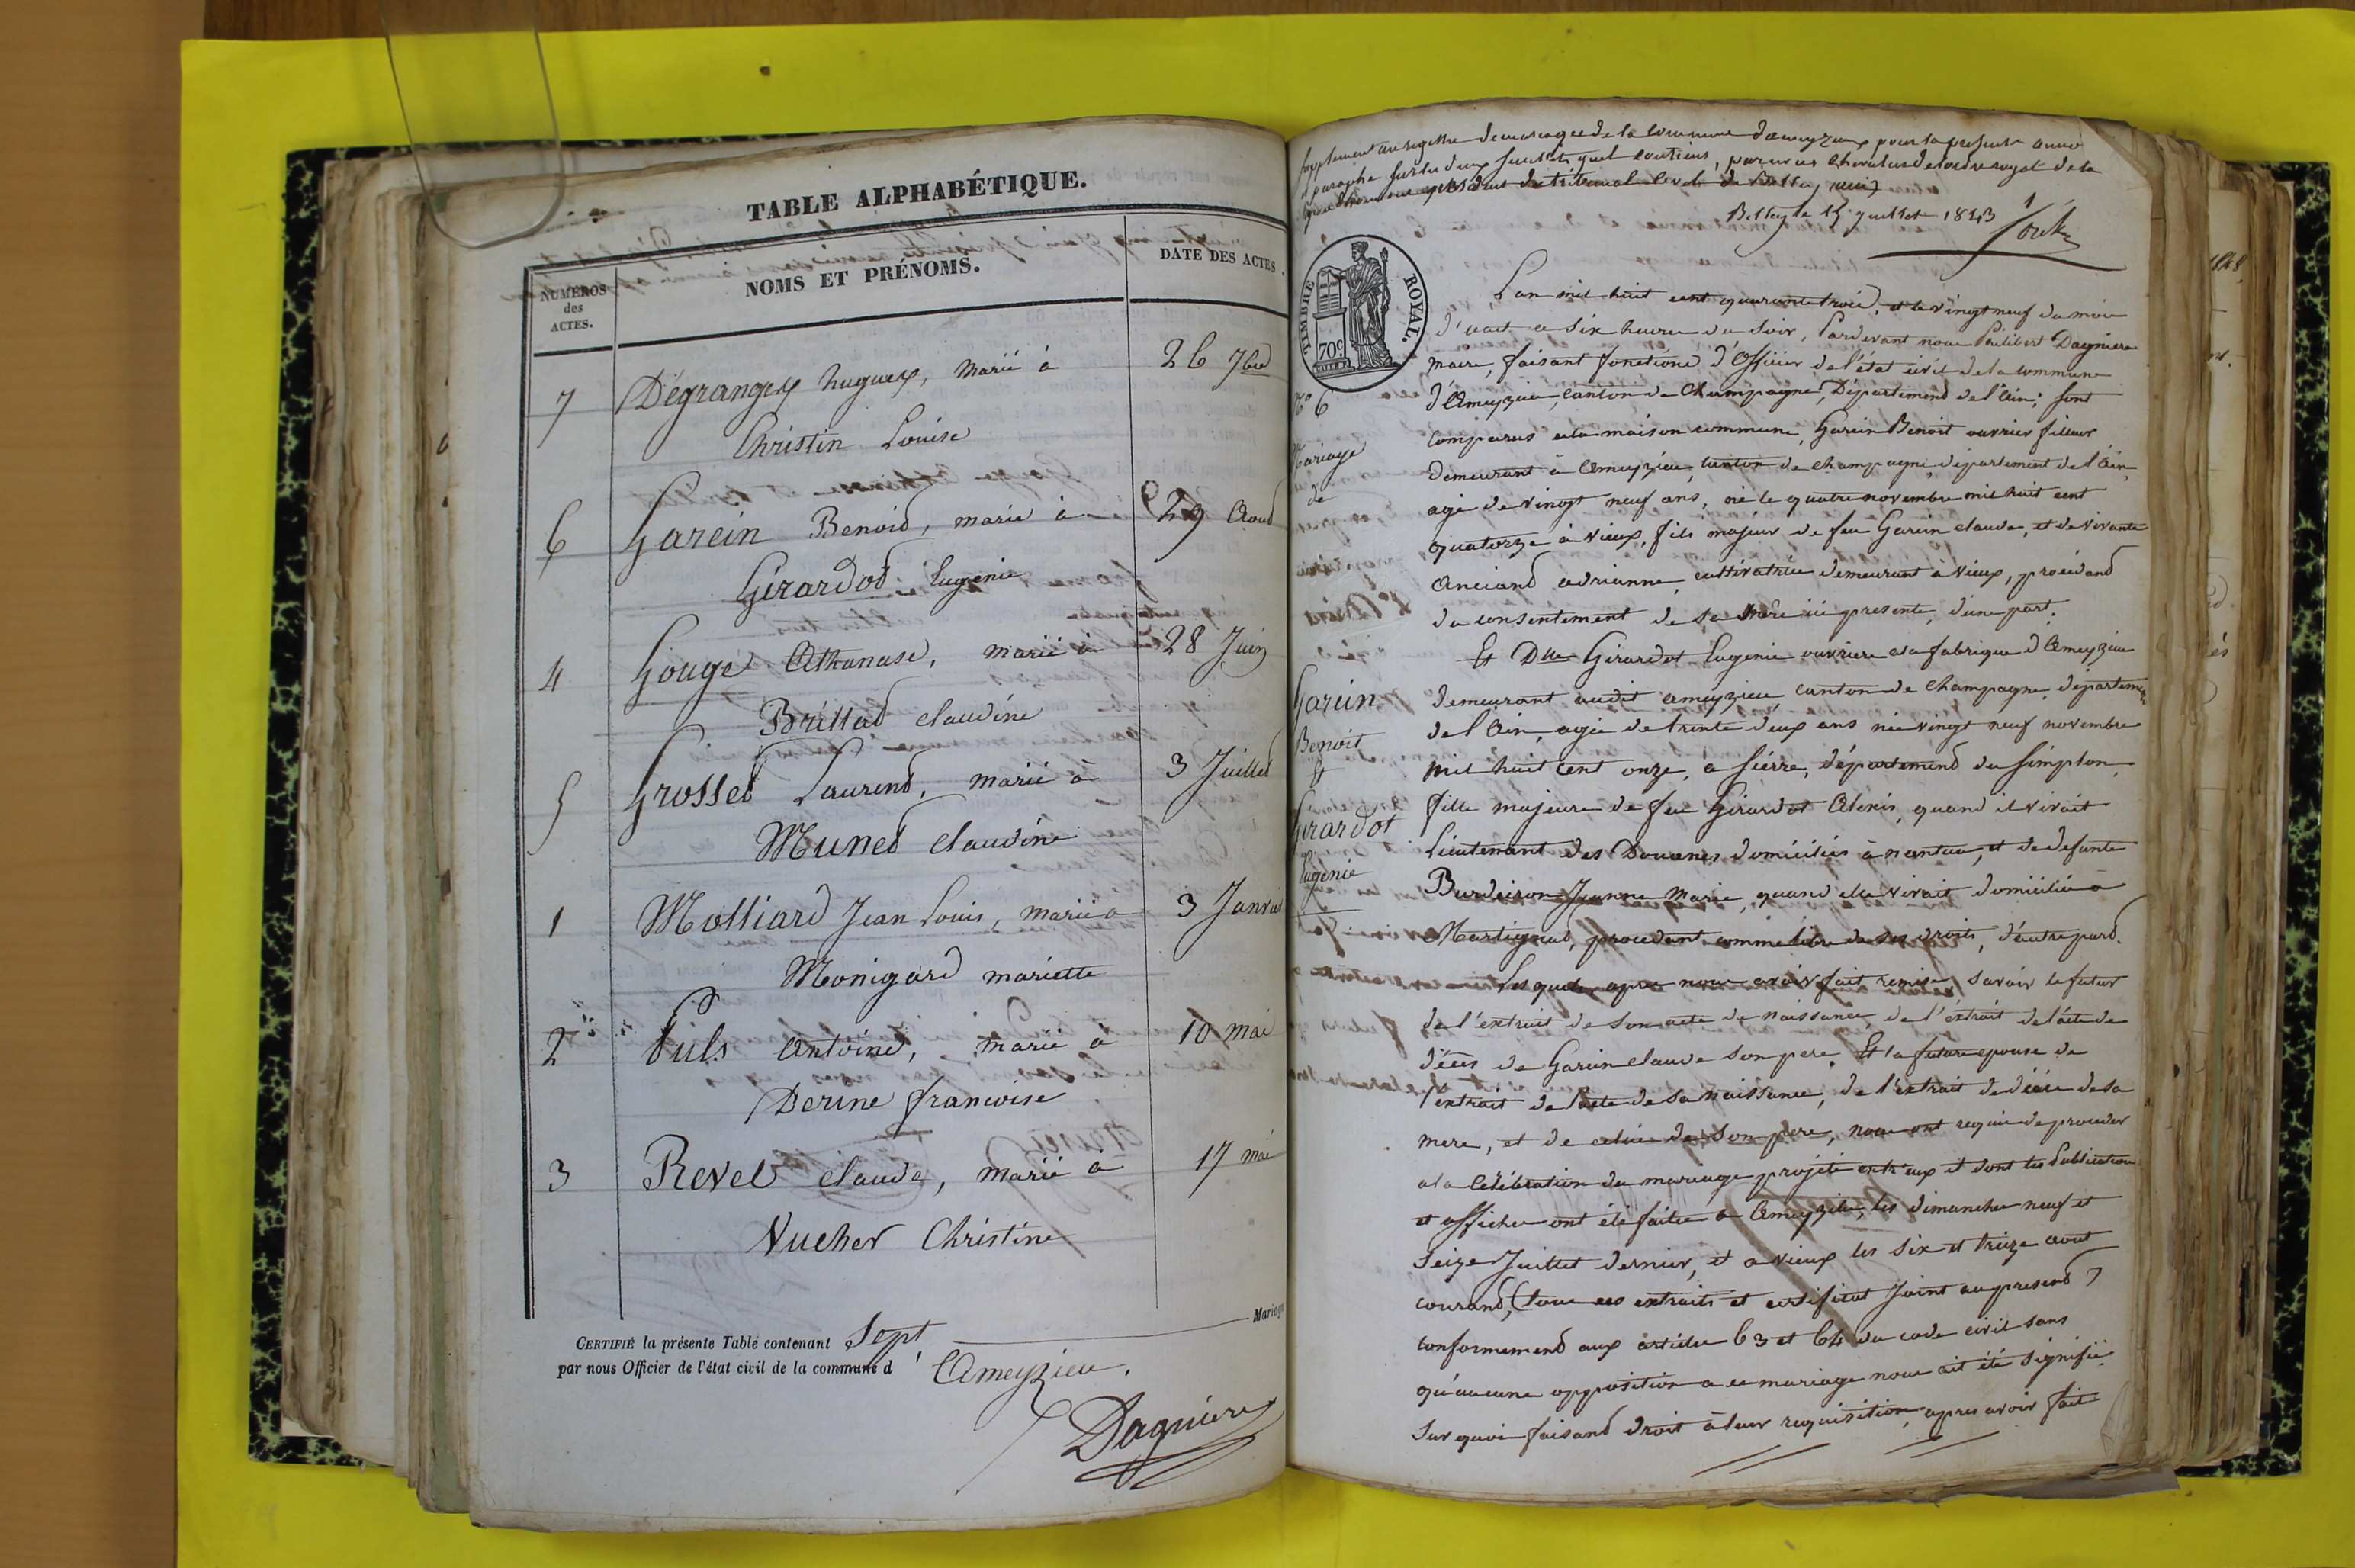 TABLE ALPHABÉTIQUE.
NUMÉROS des ACTES.
NOMS ET PRÉNOMS.
DATE DES ACTES.
7 Dégranges hugues, marié à 26 7bre
Christin Louise
6 Garein Benoid, marié à 29 Aoud
Girardod Eugénie
4 Gouge Athanase, marié à 28 Juin
Brillad claudine
5 Grossed Laurend, marié à 3 Juilled
Muned claudine
1 Molliard Jean Louis, marié a 3 Janvier
Monigard mariette
2 Puls antoine, marié à 10 mai
Derine francoise
3 Revel claude, marié à 17 mai
Vucher Christine
Mariages
CERTIFIÉ la présente Table contenant Sept
par nous Officier de l'état civil de la commune d'Ameyzieu.
Dagnière
Supplement au registre de mariages de la commune d'ameyzieu pour la presente année
paraphé sur les deux feuillets qu'il contient, par nous chevalier de l'ordre royal de la
légion d'honneur president du tribunal civil de Belley (ain)
Belley le 15 juillet 1843
TIMBRE ROYAL.
70c
L'an mil huit cent quarante trois, et le vingt neuf du mois
d'aout a six heures du soir, Pardevant nous Philibert Dagniere
maire, faisant fonctions d'officier de l'état civil de la commune
d'Ameyzieu, canton de Champagne, Département de l'Ain; sont
comparus a la maison commune, Garein Benoit ouvrier fileur
demeurant à Ameyzieu, canton de champagne, département de l'Ain,
agé de vingt neuf ans, né le quatre novembre mil huit cent
quatorze à vieux, fils majeur de feu Garein claude, et de vivante
Anciand adrianne, cultivatrice demeurant à vieux, procédand
du consentement de sa mère ici presente, d'une part.
Et Dlle Girardot Eugenie ouvriere a la fabrique d'Ameyzieu
demeurant audit ameyzieu, canton de champagne, département
de l'Ain, agée de trente deux ans née vingt neuf novembre
mil huit cent onze, a Sierre, départemend du simplon,
fille majeure de feu Girardot Alexis, quand il vivait
Lieutenant des Douanes domicilié à nantua, et de defunte
Burdeiron Jeanne Marie, quand elle vivait domiciliée à
Martignad, procedant comme libre de ses droits, d'autre pard.
Lesquels apres nous avoir fait remise, savoir le futur
de l'extrait de son acte de naissance, de l'extrait de l'acte de
décès de Garein claude son pere, Et la future epouse de
l'extrait de l'acte de sa naissance, de l'extrait de décès de sa
mere, et de celui de son pere, nous ont requis de proceder
a la célébration du mariage projeté entr'eux et dont les Publications
et affiches ont été faites a Ameyzieu, les dimanches neuf et
seize Juillet dernier, et a vieux les six et treize aout
courand, (tous ces extraits et certificat joint au presend)
conformemend aux articles 63 et 64 du code civil sans
qu'aucune opposition a ce mariage nous ait été signifiée
sur quoi faisand droit à leur requisition, apres avoir fait
N° 6
Mariage
de
Garein
Benoit
Et
Girardot
Eugénie